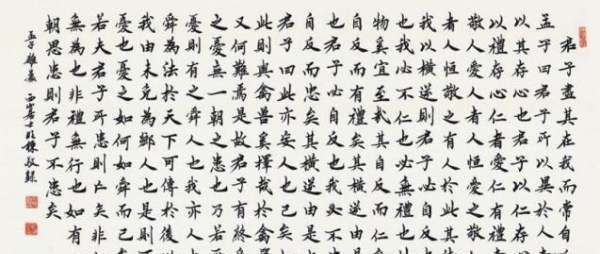 君子盡其在我而常自
孟子曰君子所以異於人
以其存心也君子以仁存
以禮存心仁者愛人有
敬人愛人者人恒愛之
者人恒敬之有人於此其
我以橫逆則君子必自
也我必不仁也必無禮也
物奚宜至哉其自反而仁
自反而有禮矣其橫逆由
也君子必自反也我必不
自反而忠矣其橫逆由是
君子曰此亦妄人也已矣
此則與禽獸奚擇哉於禽
又何難焉是故君子有終
之憂無一朝之患也乃若
憂則有之舜人也我亦人
舜為法於天下可傳於後
我由未免為鄉人也是則
憂也憂之如何如舜而已
若夫君子所患則亡矣非
無為也非禮無行也如有
朝思患則君子不患矣
孟子離婁 敬録